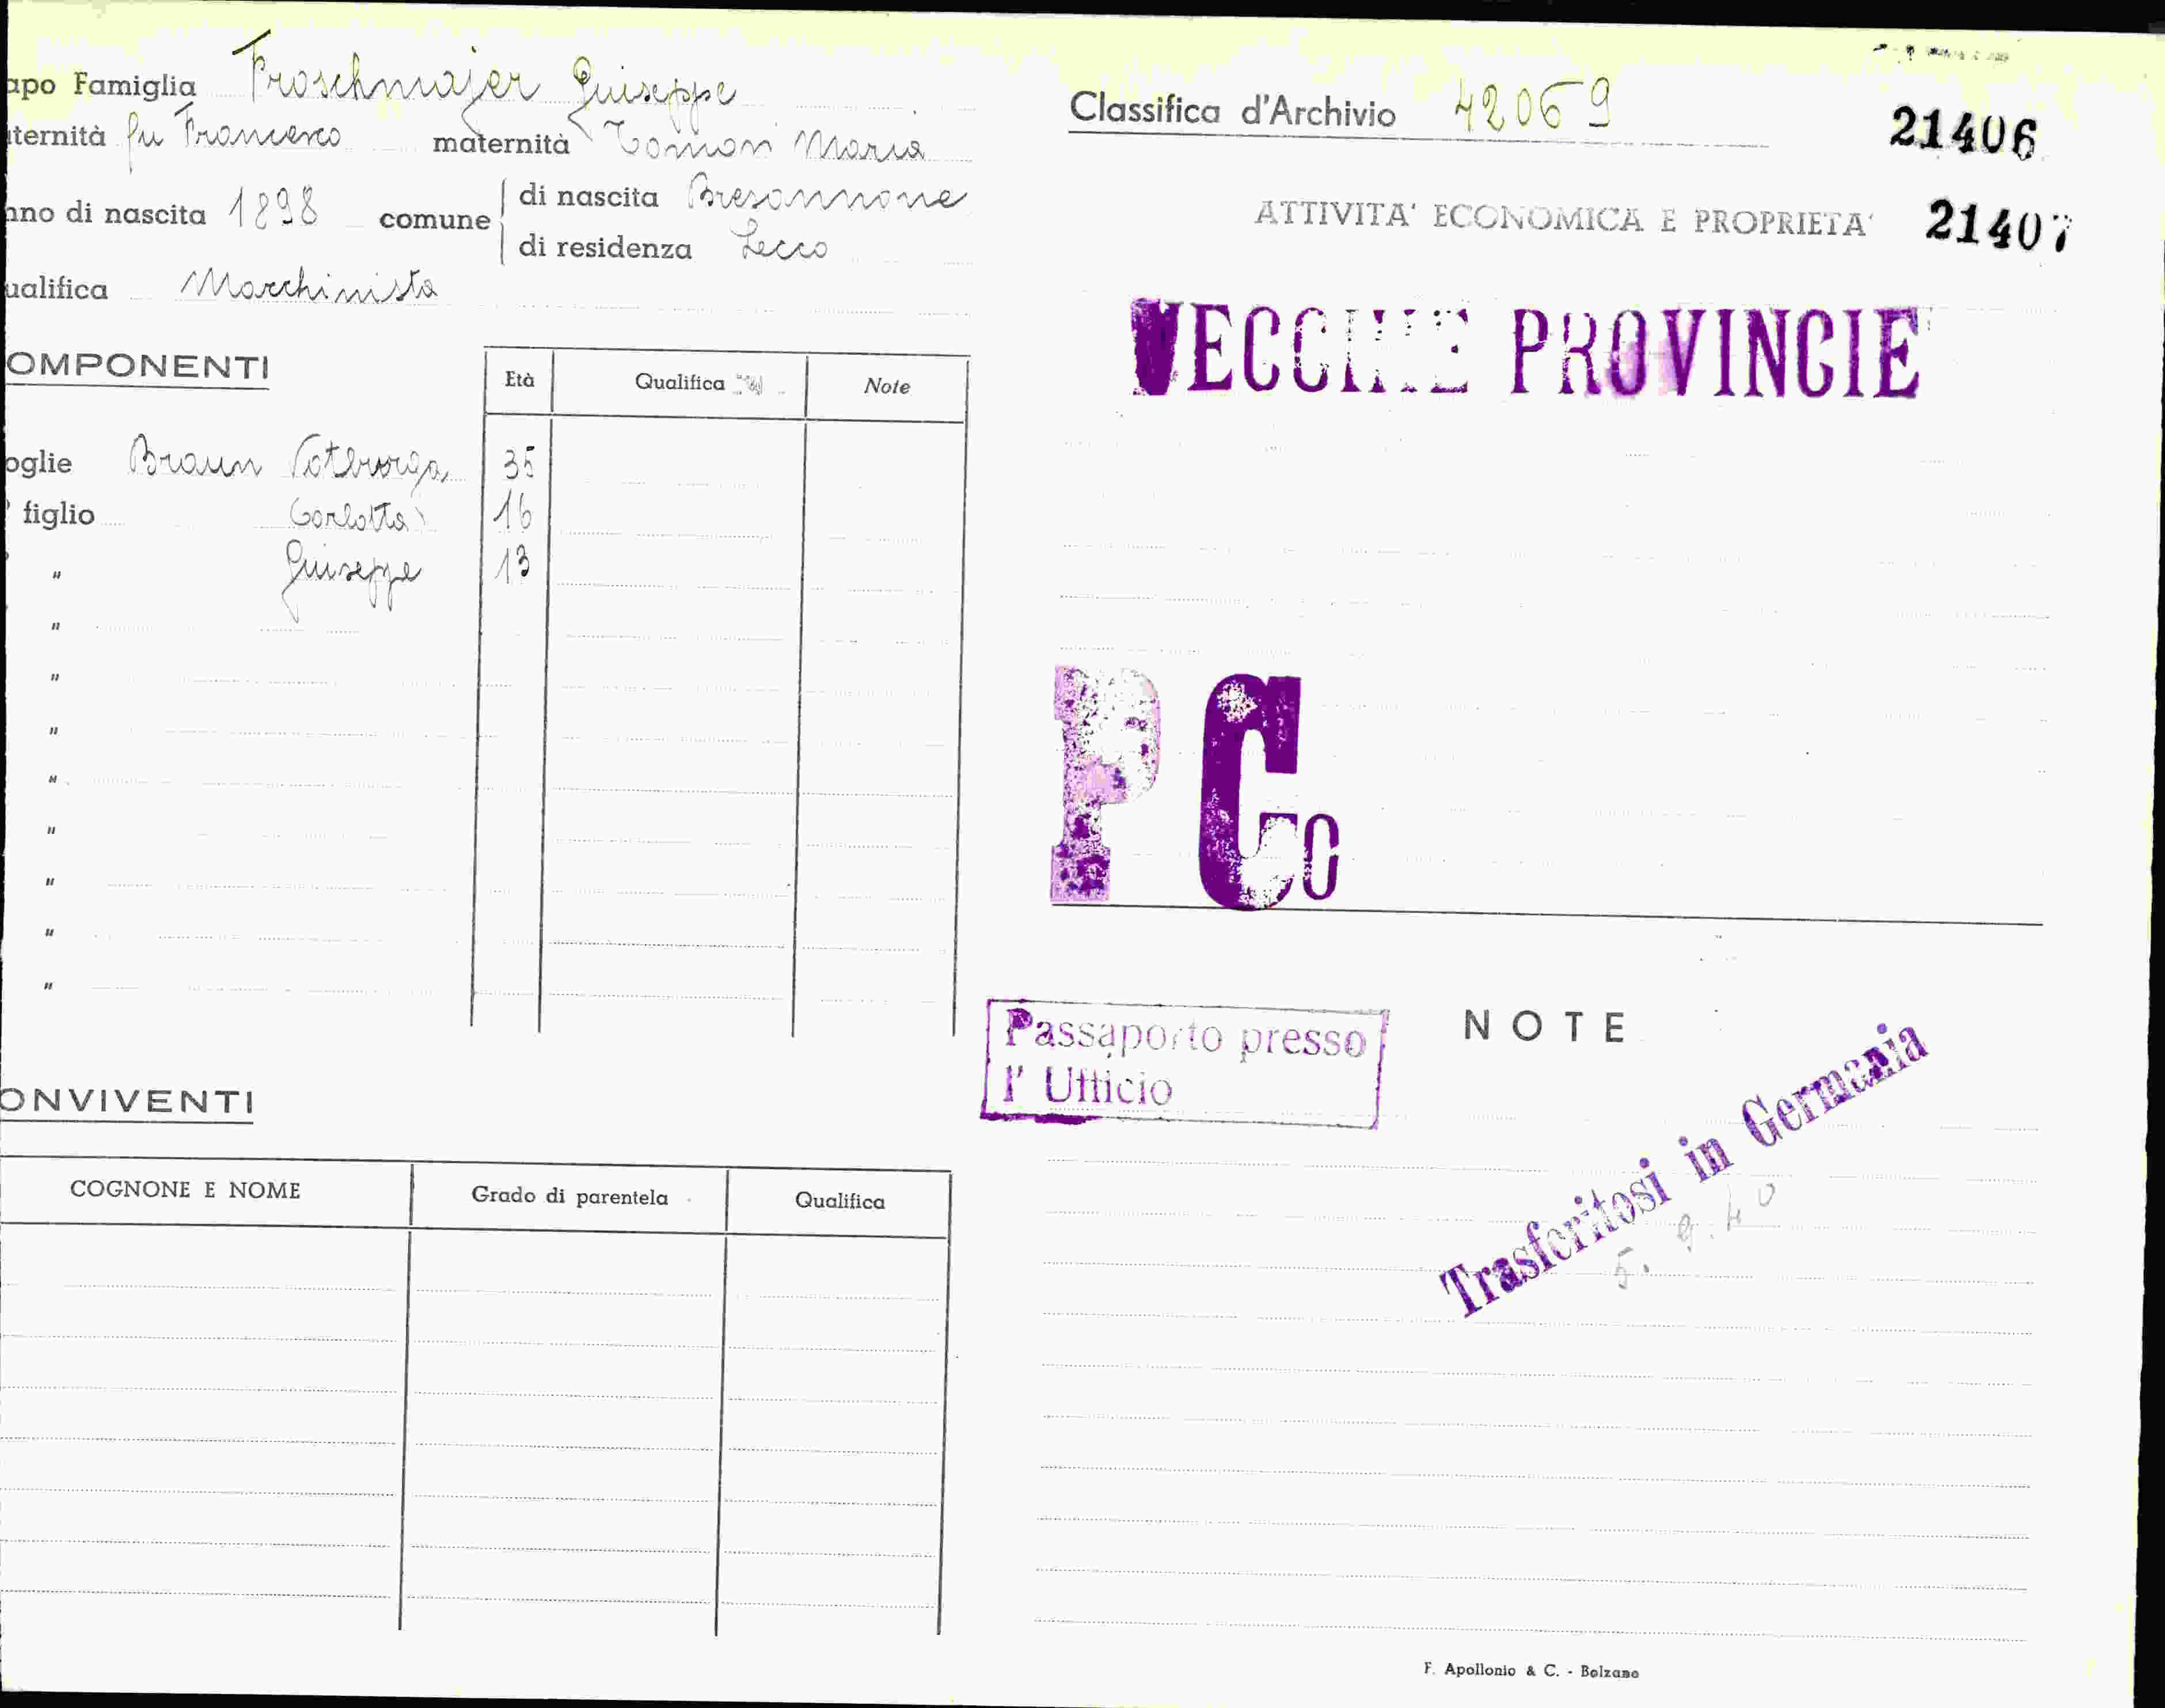 apo Famiglia Froschmajer Giuseppe
aternità fu Francesco maternità Tomasi Maria
nno di nascita 1898 comune di nascita Bressannone
di residenza Lecco
ualifica Macchinista
OMPONENTI
Età Qualifica Note
oglie Braun Notburga 35
figlio Carlotta 16
" Giuseppe 13
"
"
"
"
"
"
"
"
ONVIVENTI
COGNONE E NOME Grado di parentela Qualifica
Classifica d'Archivio 42069
21406
ATTIVITA' ECONOMICA E PROPRIETA' 21407
VECCHIE PROVINCIE
P Co
Passaporto presso
l' Ufficio
NOTE
Trasferitosi in Germania
5. 9. 40
F. Apollonio & C. - Bolzano